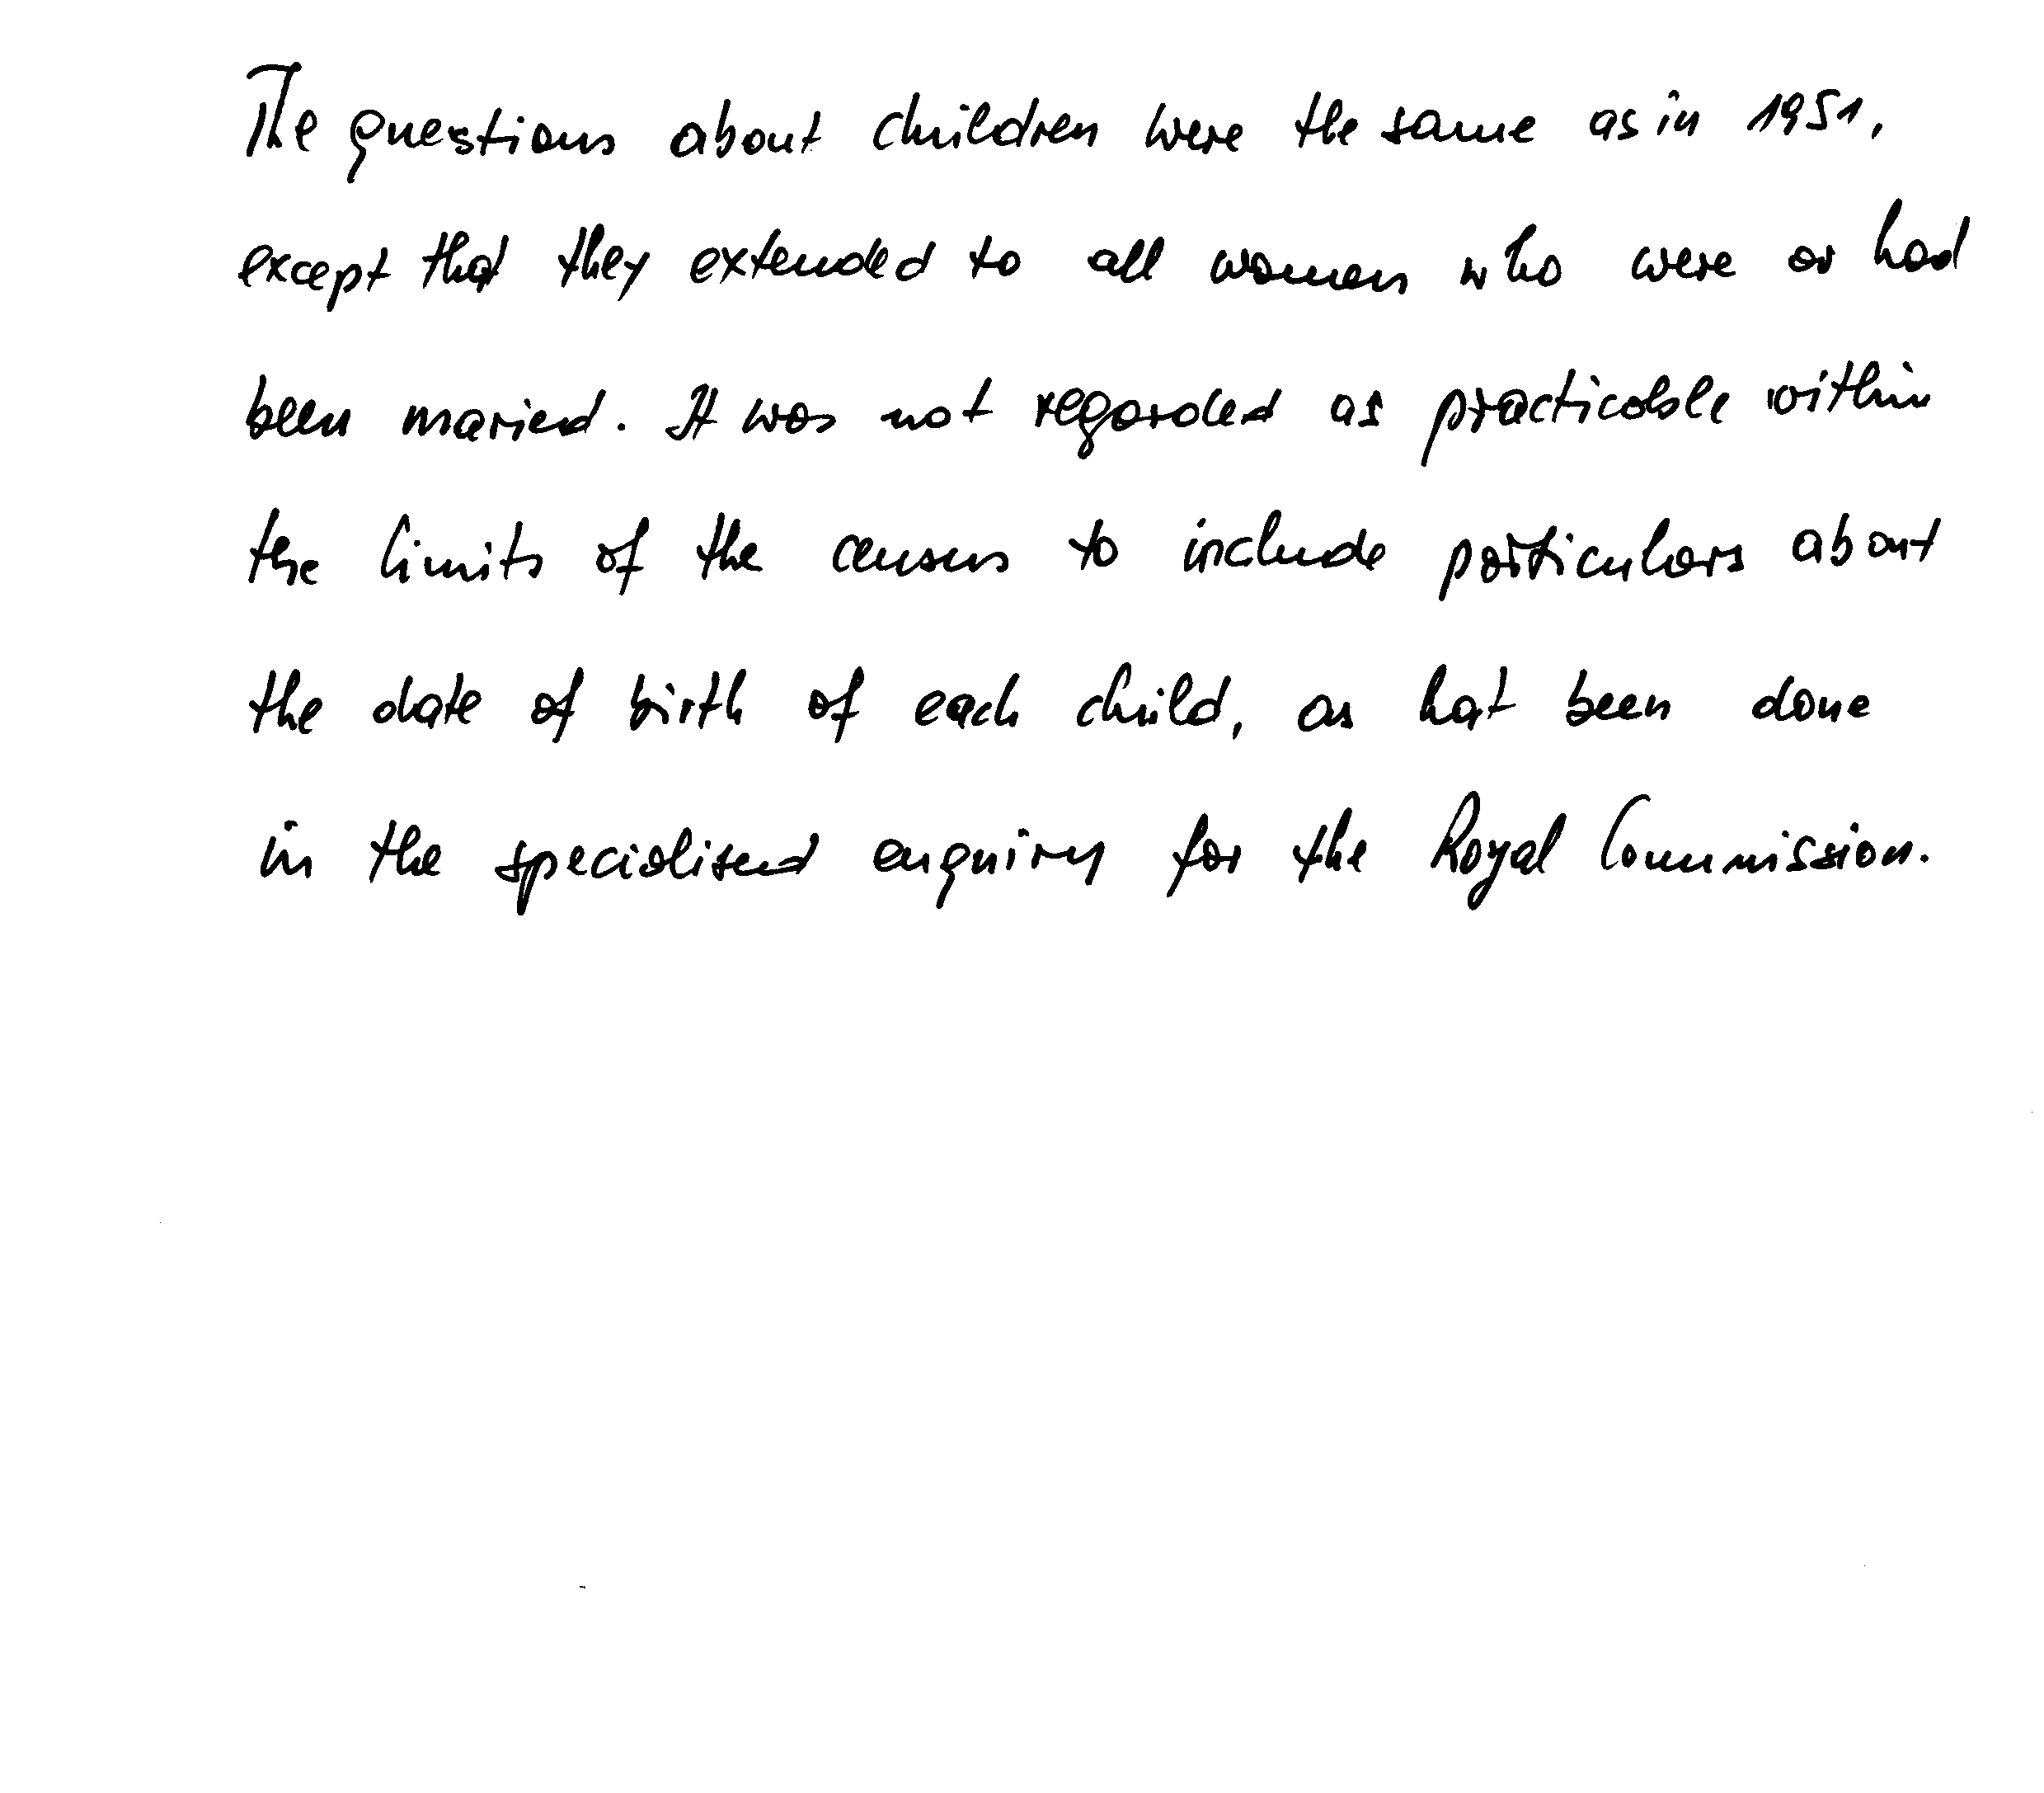 The questions about children were the same as in 1951,
except that they extended to all women who were or had
been maried. It was not regarded as practicable within
the limits of the census to include particulars about
the date of birth of each child, as hat been done
in the specialised enquiry for the Royal Commission.